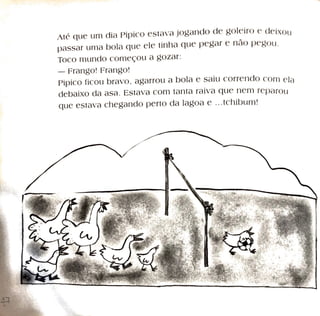 Até que um dia Pipico estava jogando de goleiro e deixou
passar uma bola que ele tinha que pegar e não pegou.
Toco mundo começou a gozar:
— Frango! Frango!
Pipico ficou bravo, agarrou a bola e saiu correndo com ela
debaixo da asa. Estava com tanta raiva que nem reparou
que estava chegando perto da lagoa e ...tchibum!